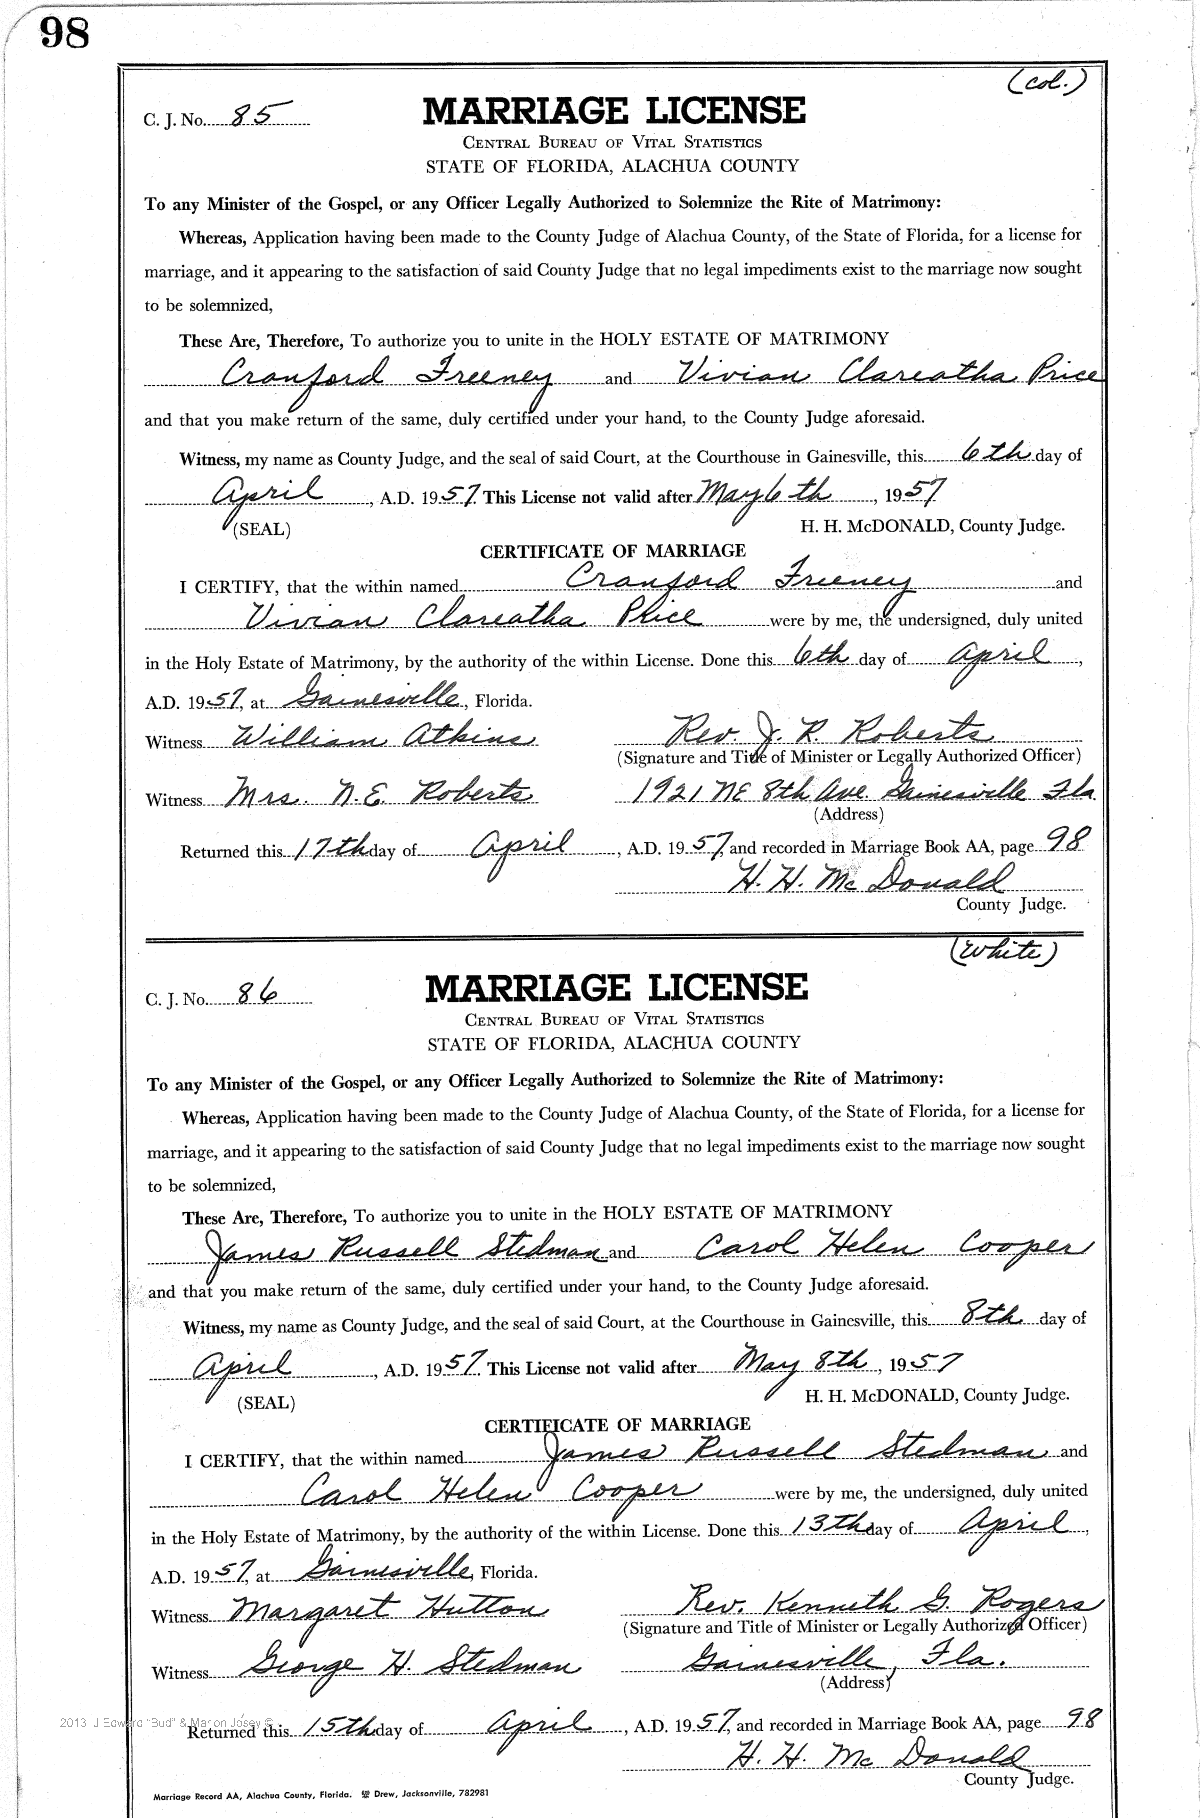 98
(col.)
C. J. No. 85 MARRIAGE LICENSE
CENTRAL BUREAU OF VITAL STATISTICS
STATE OF FLORIDA, ALACHUA COUNTY
To any Minister of the Gospel, or any Officer Legally Authorized to Solemnize the Rite of Matrimony:
Whereas, Application having been made to the County Judge of Alachua County, of the State of Florida, for a license for
marriage, and it appearing to the satisfaction of said County Judge that no legal impediments exist to the marriage now sought
to be solemnized,
These Are, Therefore, To authorize you to unite in the HOLY ESTATE OF MATRIMONY
Cranford Freeney and Vivian Clareatha Price
and that you make return of the same, duly certified under your hand, to the County Judge aforesaid.
Witness, my name as County Judge, and the seal of said Court, at the Courthouse in Gainesville, this 6th day of
April, A.D. 1957. This License not valid after May 6th, 1957
(SEAL) H. H. McDONALD, County Judge.
CERTIFICATE OF MARRIAGE
I CERTIFY, that the within named Cranford Freeney and
Vivian Clareatha Price were by me, the undersigned, duly united
in the Holy Estate of Matrimony, by the authority of the within License. Done this 6th day of April,
A.D. 1957, at Gainesville, Florida.
Witness William Atkins Rev. J. R. Roberts
(Signature and Title of Minister or Legally Authorized Officer)
Witness Mrs. N.E. Roberts 1921 NE 8th Ave. Gainesville Fla
(Address)
Returned this 17th day of April, A.D. 1957, and recorded in Marriage Book AA, page 98
H. H. McDonald
County Judge.
(White)
C. J. No. 86 MARRIAGE LICENSE
CENTRAL BUREAU OF VITAL STATISTICS
STATE OF FLORIDA, ALACHUA COUNTY
To any Minister of the Gospel, or any Officer Legally Authorized to Solemnize the Rite of Matrimony:
Whereas, Application having been made to the County Judge of Alachua County, of the State of Florida, for a license for
marriage, and it appearing to the satisfaction of said County Judge that no legal impediments exist to the marriage now sought
to be solemnized,
These Are, Therefore, To authorize you to unite in the HOLY ESTATE OF MATRIMONY
James Russell Stedman and Carol Helen Cooper
and that you make return of the same, duly certified under your hand, to the County Judge aforesaid.
Witness, my name as County Judge, and the seal of said Court, at the Courthouse in Gainesville, this 8th day of
April, A.D. 1957. This License not valid after May 8th, 1957
(SEAL) H. H. McDONALD, County Judge.
CERTIFICATE OF MARRIAGE
I CERTIFY, that the within named James Russell Stedman and
Carol Helen Cooper were by me, the undersigned, duly united
in the Holy Estate of Matrimony, by the authority of the within License. Done this 13th day of April,
A.D. 1957, at Gainesville, Florida.
Witness Margaret Hutton Rev. Kenneth G. Rogers
(Signature and Title of Minister or Legally Authorized Officer)
Witness George H. Stedman Gainesville, Fla.
(Address)
2013 J Edward "Bud" & Marion Josey ©
Returned this 15th day of April, A.D. 1957, and recorded in Marriage Book AA, page 98
H. H. McDonald
County Judge.
Marriage Record AA, Alachua County, Florida. Drew, Jacksonville, 782981